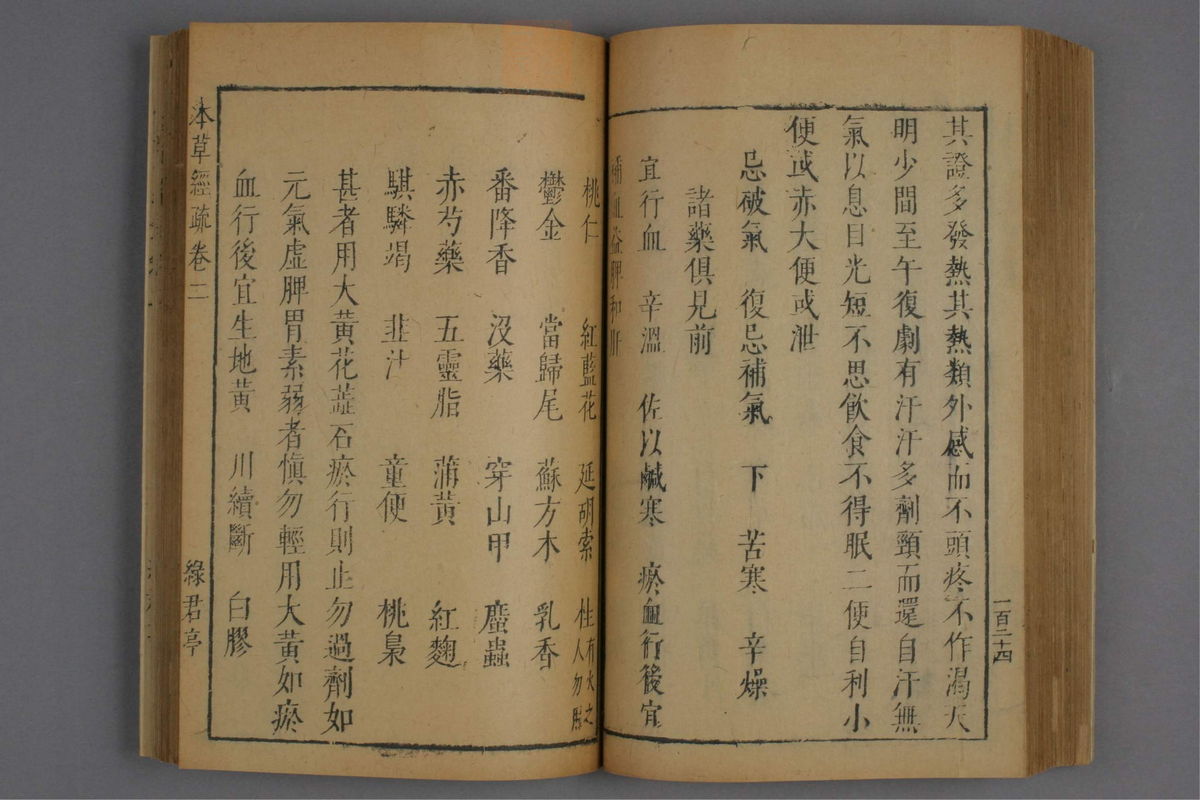 其證多發熱其熱類外感而不頭疼不作渴天
明少間至午復劇有汗汗多劑頸而還自汗無
氣以息目光短不思飲食不得眠二便自利小
便或赤大便或泄
忌破氣 復忌補氣 下 苦寒 辛燥
諸藥俱見前
宜行血 辛溫 佐以鹹寒 瘀血行後宜
補血益脾和肝
一百二十四
桃仁 紅藍花 延胡索 性有火之人勿服
鬱金 當歸尾 蘇方木 乳香
番降香 沒藥 穿山甲 䗪蟲
赤芍藥 五靈脂 蒲黃 紅麴
騏驎竭 韭汁 童便 桃梟
甚者用大黃花蕋石瘀行則止勿過劑如
元氣虛脾胃素弱者慎勿輕用大黃如瘀
血行後宜生地黃 川續斷 白膠
本草經疏卷二 綠君亭